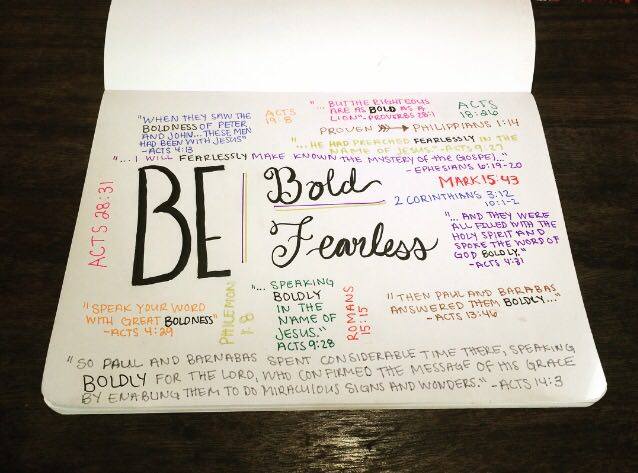 "WHEN THEY SAW THE
BOLDNESS OF PETER
AND JOHN... THESE MEN
HAD BEEN WITH JESUS"
-ACTS 4:13
ACTS
19:8
"... BUT THE RIGHTEOUS
ARE AS BOLD AS A
LION" -PROVERBS 28:1
ACTS
18:26
PROVEN PHILIPPIANS 1:14
"... HE HAD PREACHED FEARLESSLY IN THE
NAME OF JESUS." -ACTS 9:27
"... I WILL FEARLESSLY MAKE KNOWN THE MYSTERY OF the GOSPEL..."
-EPHESIANS 6:19-20
ACTS 28:31
BE
Bold
Fearless
MARK 15:43
2 CORINTHIANS 3:12
10:1-2
"... AND THEY WERE
ALL FILLED WITH THE
HOLY SPIRIT AND
SPOKE THE WORD OF
GOD BOLDLY."
-ACTS 4:31
"SPEAK YOUR WORD
WITH GREAT BOLDNESS"
-ACTS 4:29
PHILEMON
1:8
"... SPEAKING
BOLDLY
IN THE
NAME OF
JESUS."
ACTS 9:28
ROMANS
15:15
"THEN PAUL AND BARABAS
ANSWERED THEM BOLDLY..."
-ACTS 13:46
"SO PAUL AND BARNABAS SPENT CONSIDERABLE TIME THERE, SPEAKING
BOLDLY FOR THE LORD, WHO CONFIRMED THE MESSAGE OF HIS GRACE
BY ENABLING THEM TO DO MIRACULOUS SIGNS AND WONDERS." -ACTS 14:3